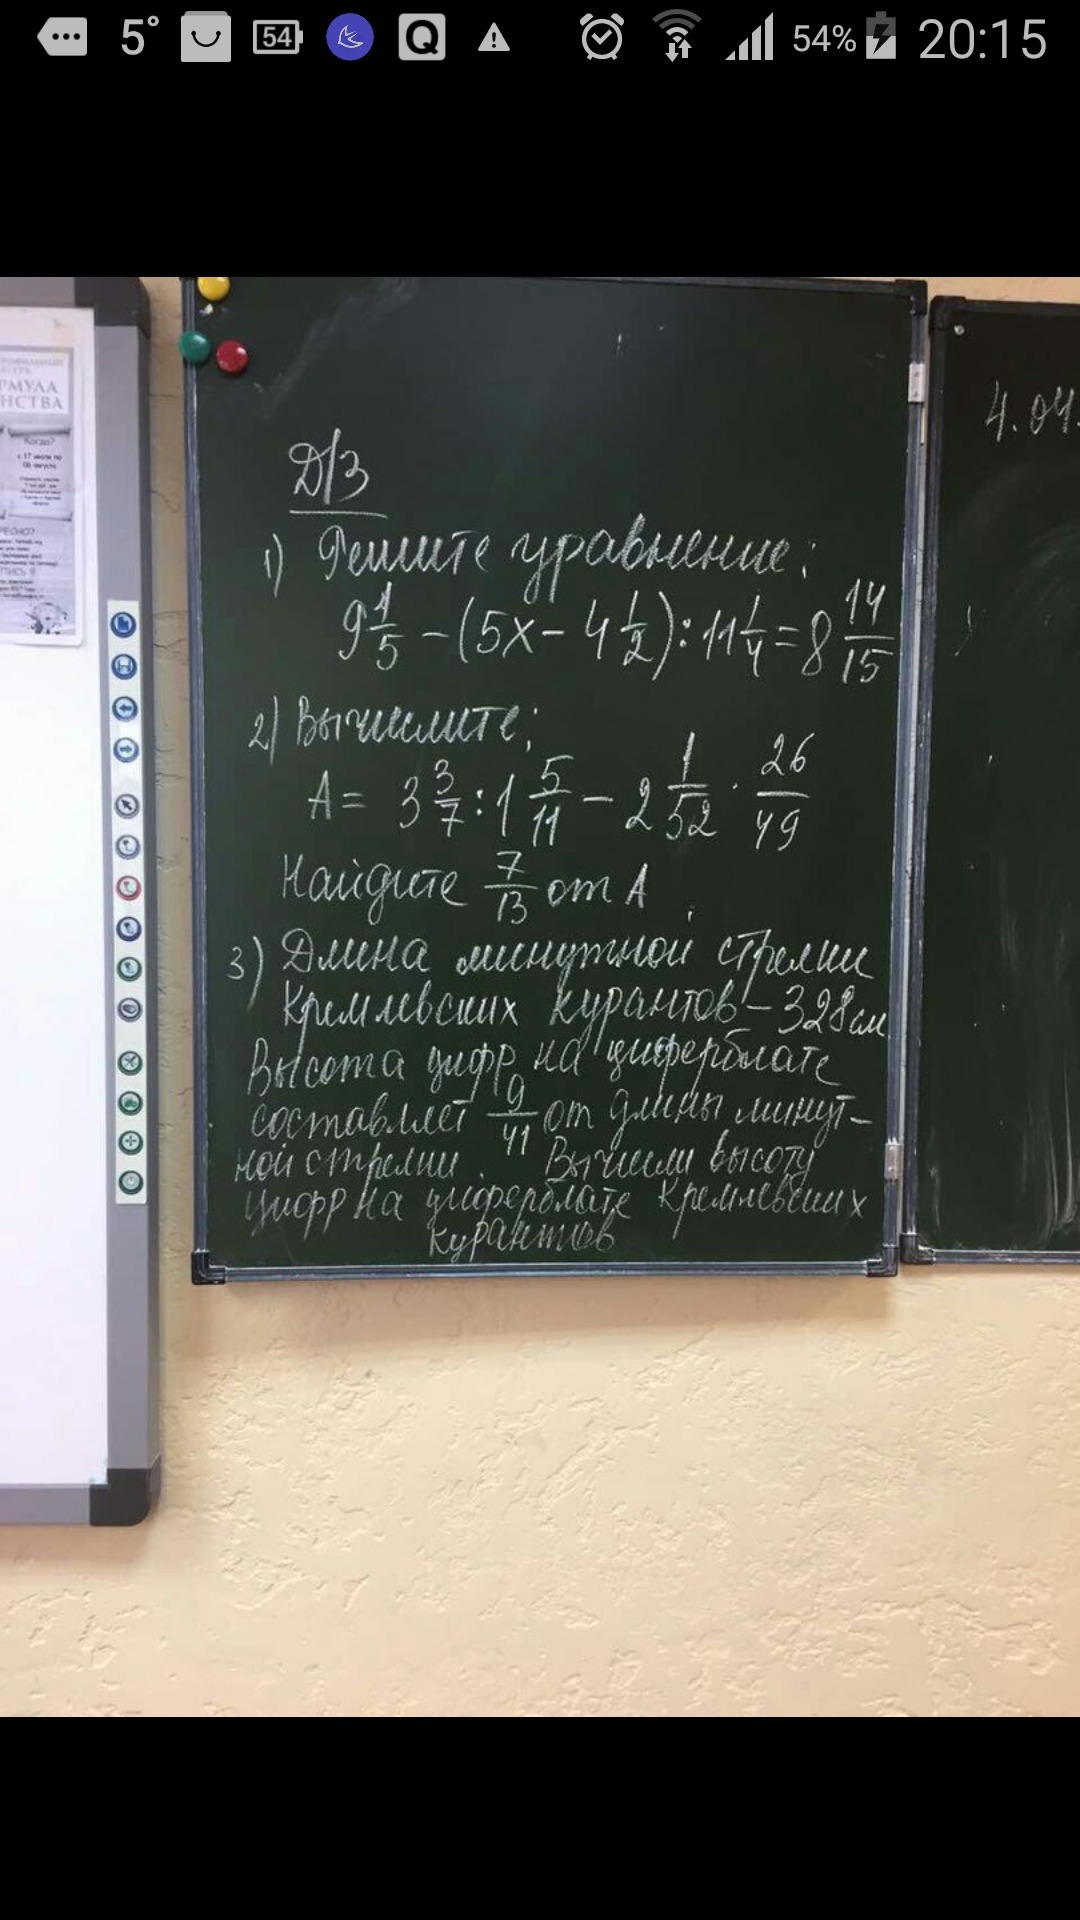 5° 54 Q 54% 20:15
РМУЛА
НСТВА
Когда?
4.04.
Д/З
1) Решите уравнение:
9 1/5 - (5x - 4 1/2) : 11 1/4 = 8 14/15
2) Вычислите:
A = 3 3/7 : 1 5/11 - 2 1/52 · 26/49
Найдите 7/13 от А
3) Длина минутной стрелки
Кремлевских курантов - 328 см
Высота цифр на циферблате
составляет 9/41 от длины минут-
ной стрелки. Вычисли высоту
цифр на циферблате Кремлевских
курантов